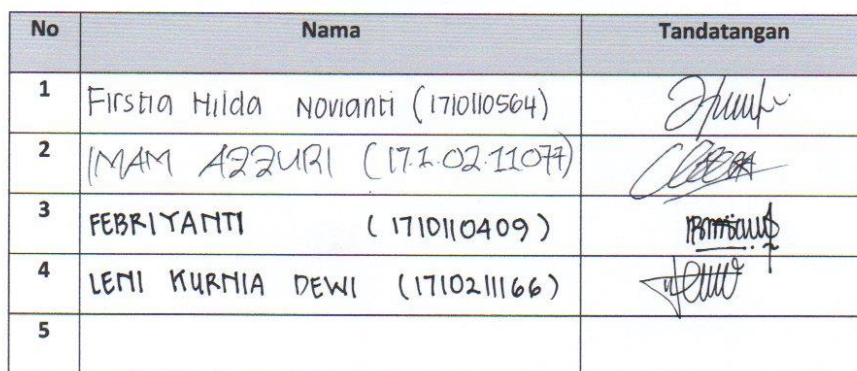 No Nama Tandatangan
1 Firstia Hilda Novianti (1710110564)
2 IMAM AZZURI (17.1.02.11077)
3 FEBRIYANTI (1710110409)
4 LENI KURNIA DEWI (1710211166)
5